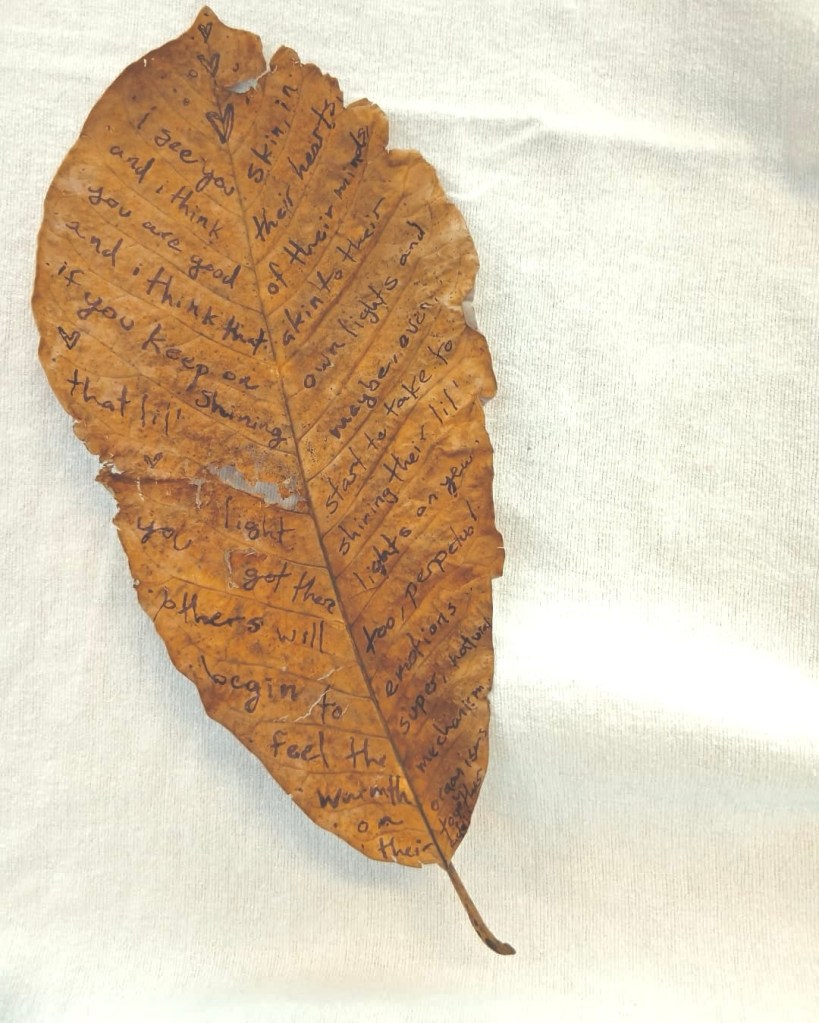 i see you
and i think
you are good
and i think that
if you keep on
shining
that lil'
light
you
got there
others will
begin to
feel the
warmth
on
their
skin, in
their hearts,
of their minds,
akin to their
own lights and
maybe, even,
start to take to
shining their lil'
lights on you
too, perpetual
emotions
super, natural
mechanism
organisms
together